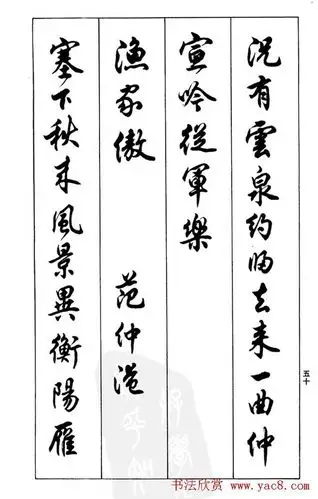 況有雲泉約歸去來一曲仲
宣吟從軍樂
漁家傲 范仲淹
塞下秋来風景異衡陽雁
五十
书法欣赏 www.yac8.com